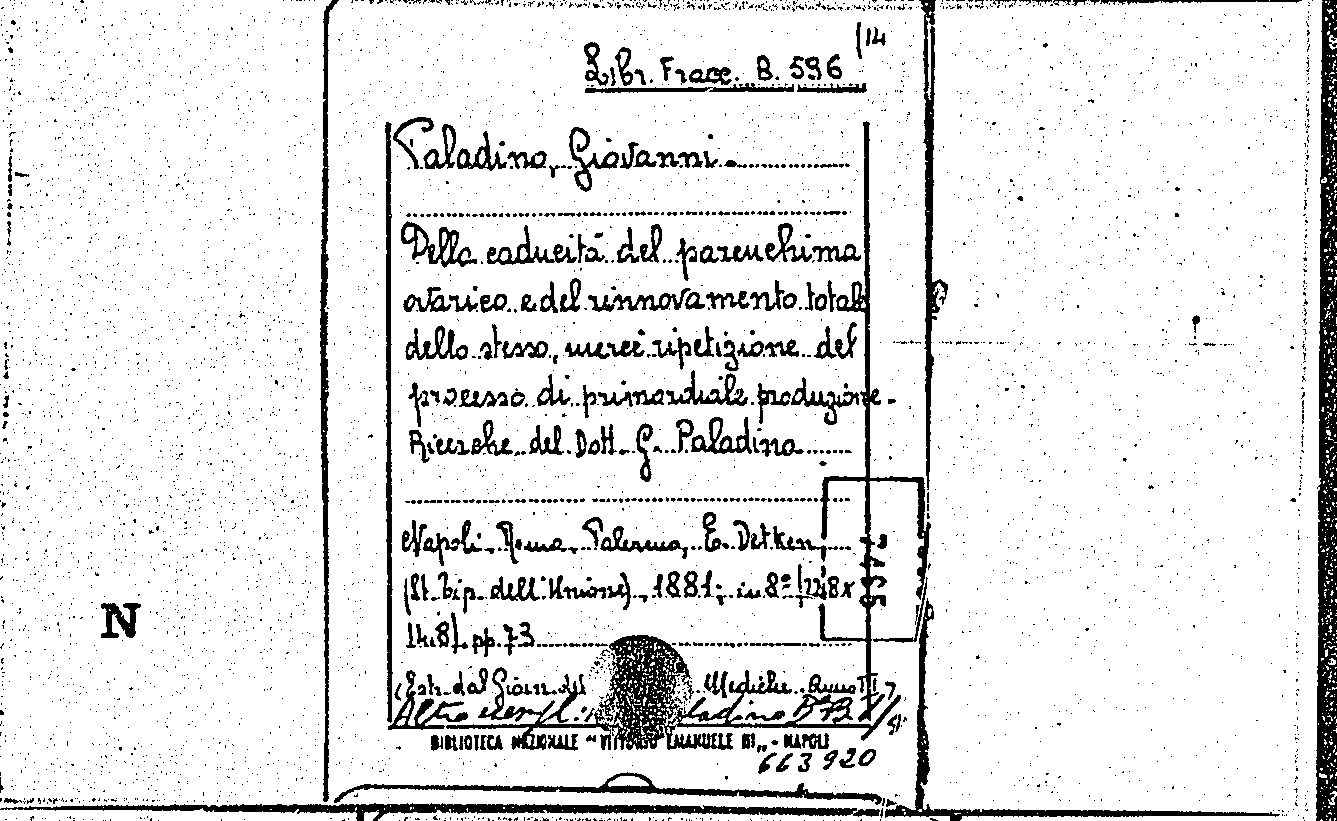 (14
Libr. Fracc. B. 596
Paladino, Giovanni.
Della caducità del parenchima
ovarico e del rinnovamento totale
dello stesso, mercè ripetizione del
processo di primordiale produzione.
Ricerche del Dott. G. Paladino
Napoli. Roma. Palermo, E. Detken
(St. Tip. dell'Unione), 1881; in 8º
14.8) pp. 73
(Estr. dal Giorn. Mediche. Anno III
Altro
BIBLIOTECA NAZIONALE "VITTORIO EMANUELE III„ - NAPOLI
663920
N